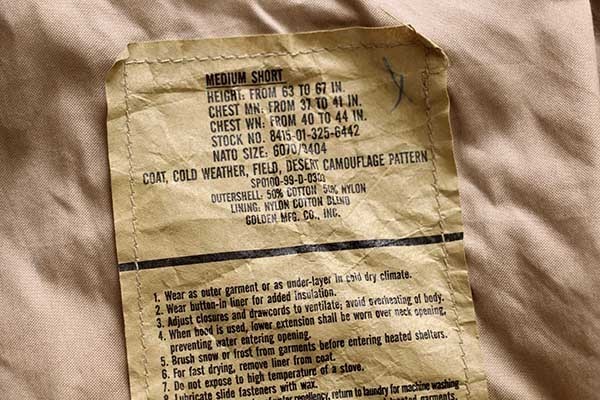 MEDIUM SHORT
HEIGHT: FROM 63 TO 67 IN.
CHEST MN: FROM 37 TO 41 IN.
CHEST WN: FROM 40 TO 44 IN.
STOCK NO. 8415-01-325-6442
NATO SIZE: 6070/9404
COAT, COLD WEATHER, FIELD, DESERT CAMOUFLAGE PATTERN
OUTERSHELL: 50% COTTON 50% NYLON
LINING: NYLON COTTON BLEND
GOLDEN MFG. CO., INC.
1. Wear as outer garment or as under-layer in cold dry climate.
2. Wear button-in liner for added insulation.
3. Adjust closures and drawcords to ventilate; avoid overheating of body.
4. When hood is used, lower extension shall be worn over neck opening,
preventing water entering opening.
5. Brush snow or frost from garments before entering heated shelters.
6. For fast drying, remove liner from coat.
7. Do not expose to high temperature of a stove.
8. Lubricate slide fasteners with wax.
water repellency, return to laundry for machine washing